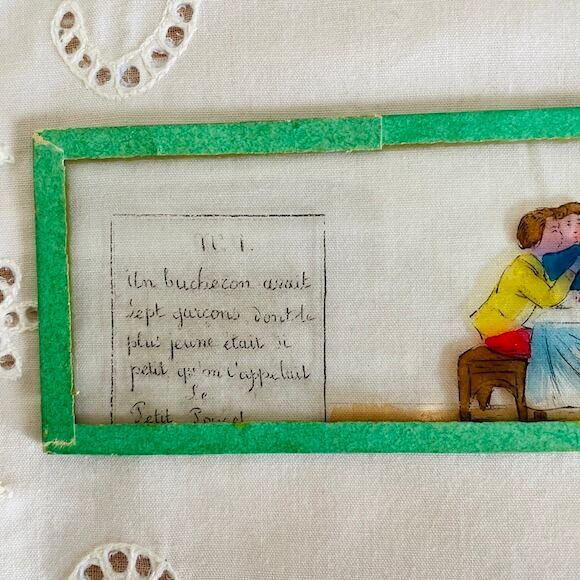 N° 1.
Un bucheron avait
sept garçons dont le
plus jeune était si
petit qu'on l'appelait
Le
Petit Poucet